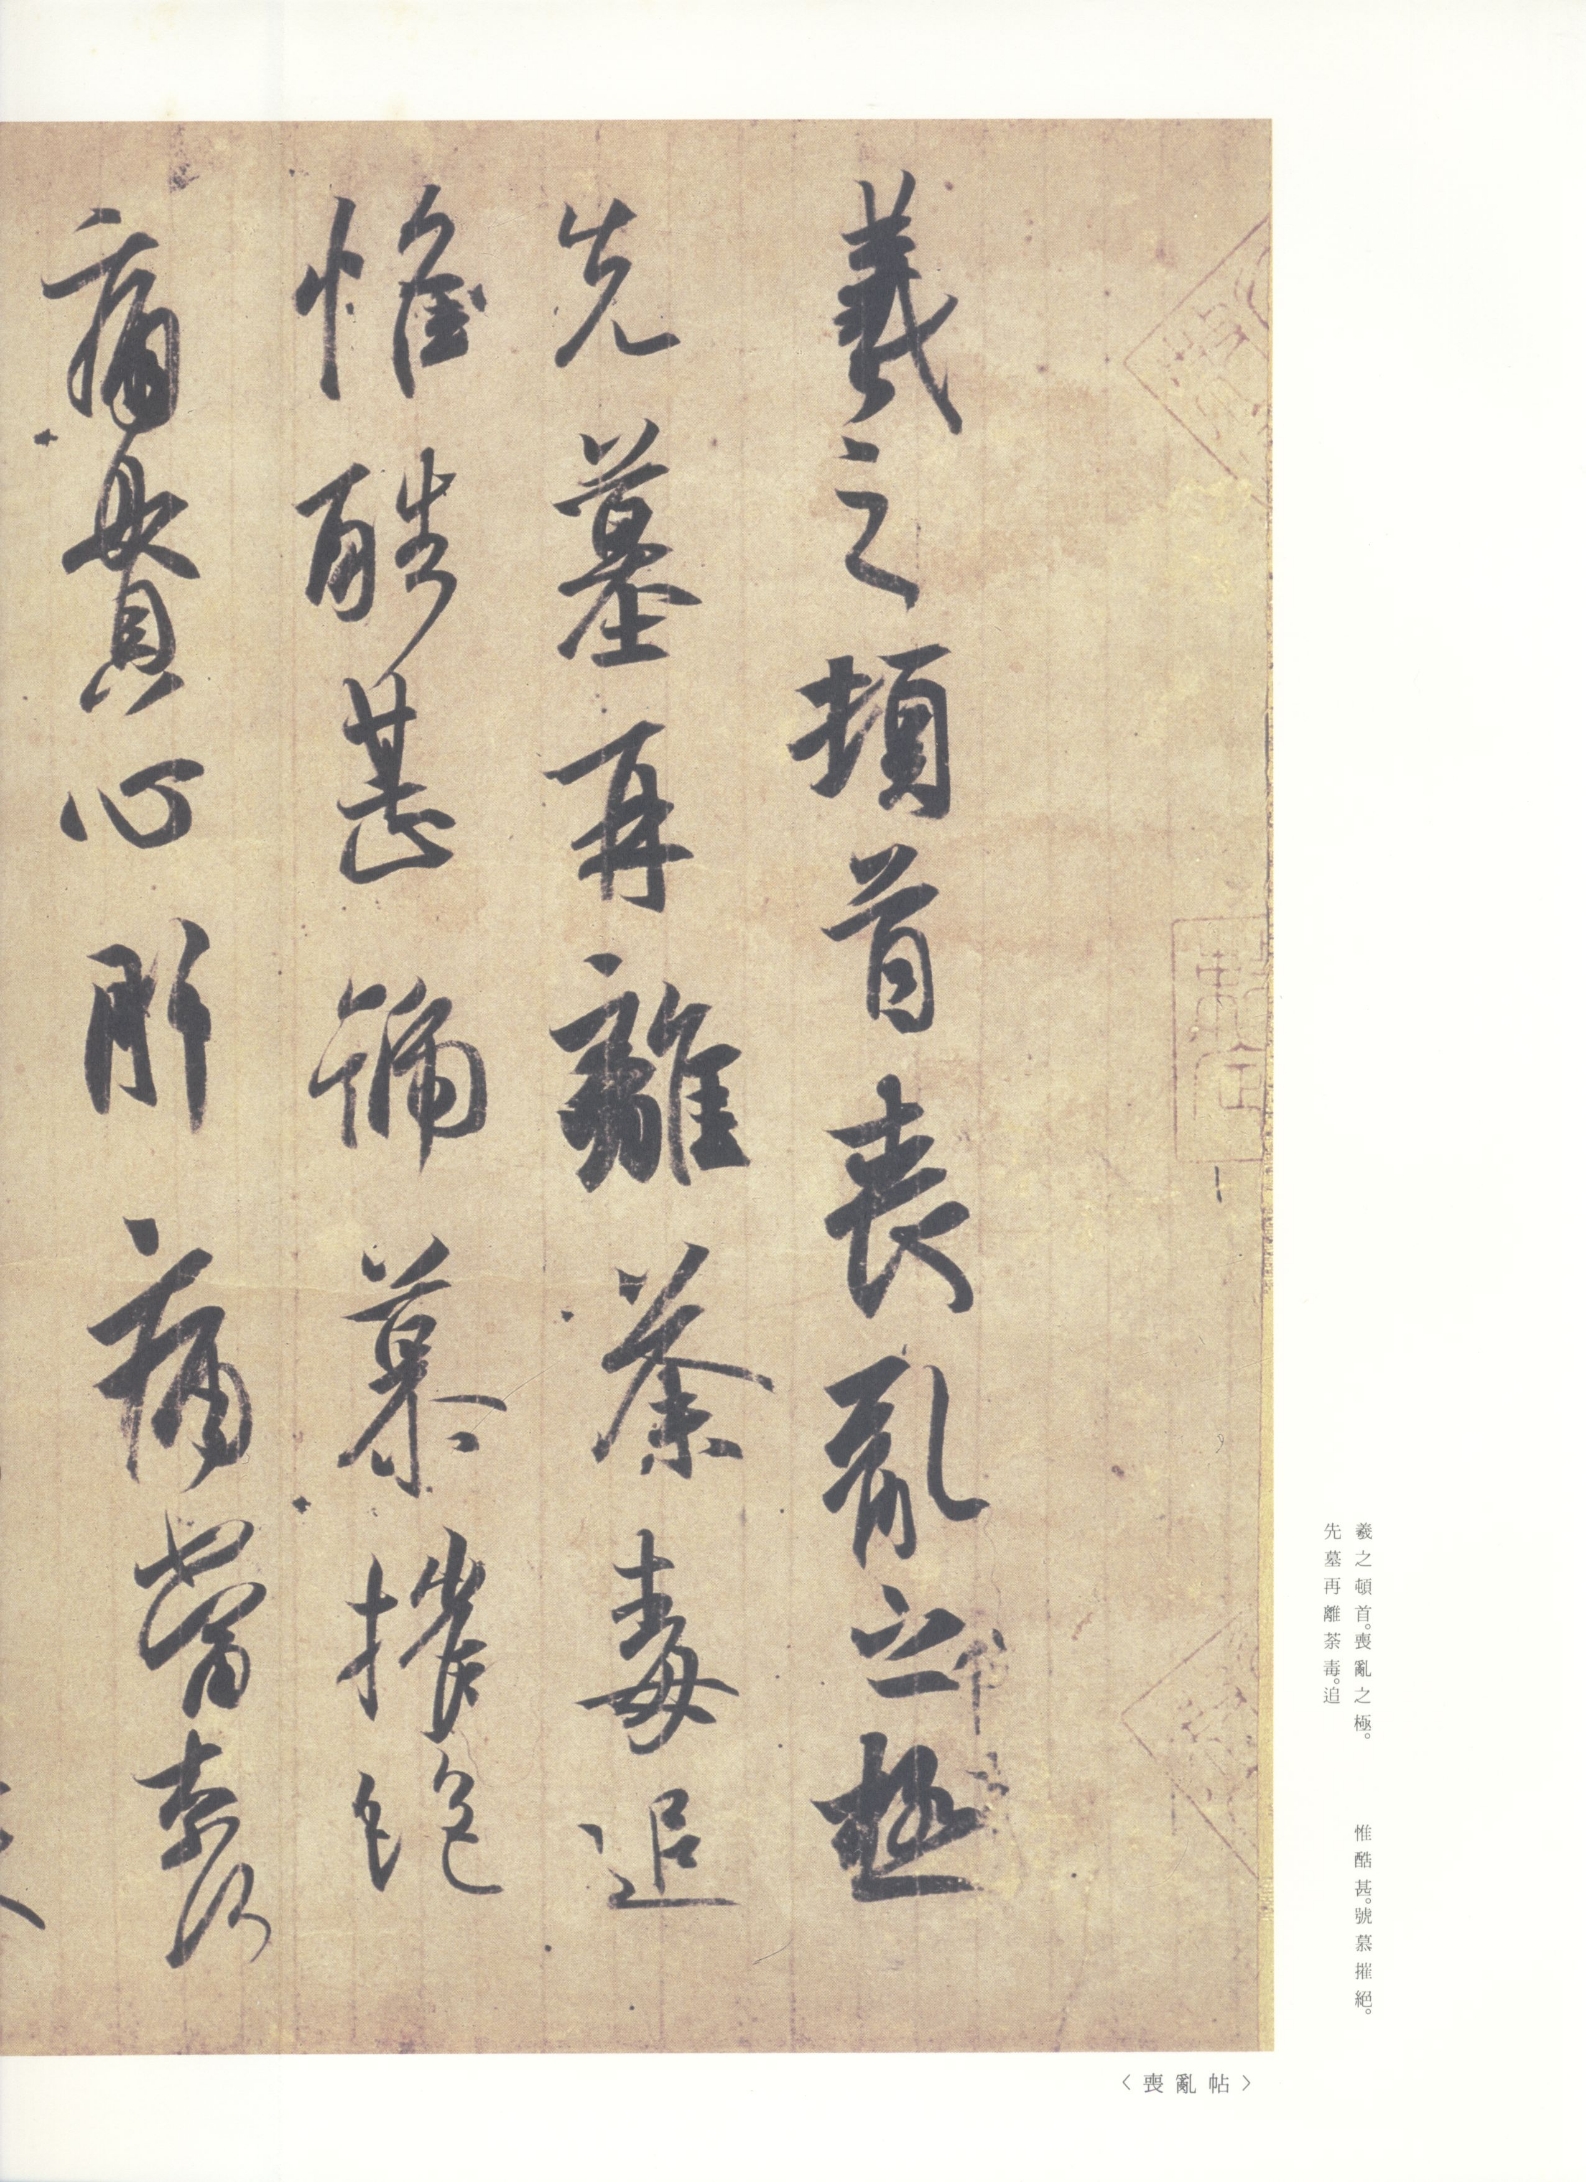 羲之頓首喪亂之極
先墓再離荼毒追
惟酷甚號慕摧絕
痛貫心肝痛當柰何
羲之頓首。喪亂之極。
先墓再離荼毒。追
惟酷甚。號慕摧絕。
〈喪亂帖〉